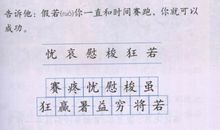 告诉他：假若(ruò)你一直和时间赛跑，你就可以
成功。
忧哀慰梭狂若
赛疼忧慰梭虽
狂赢暑益穷将若